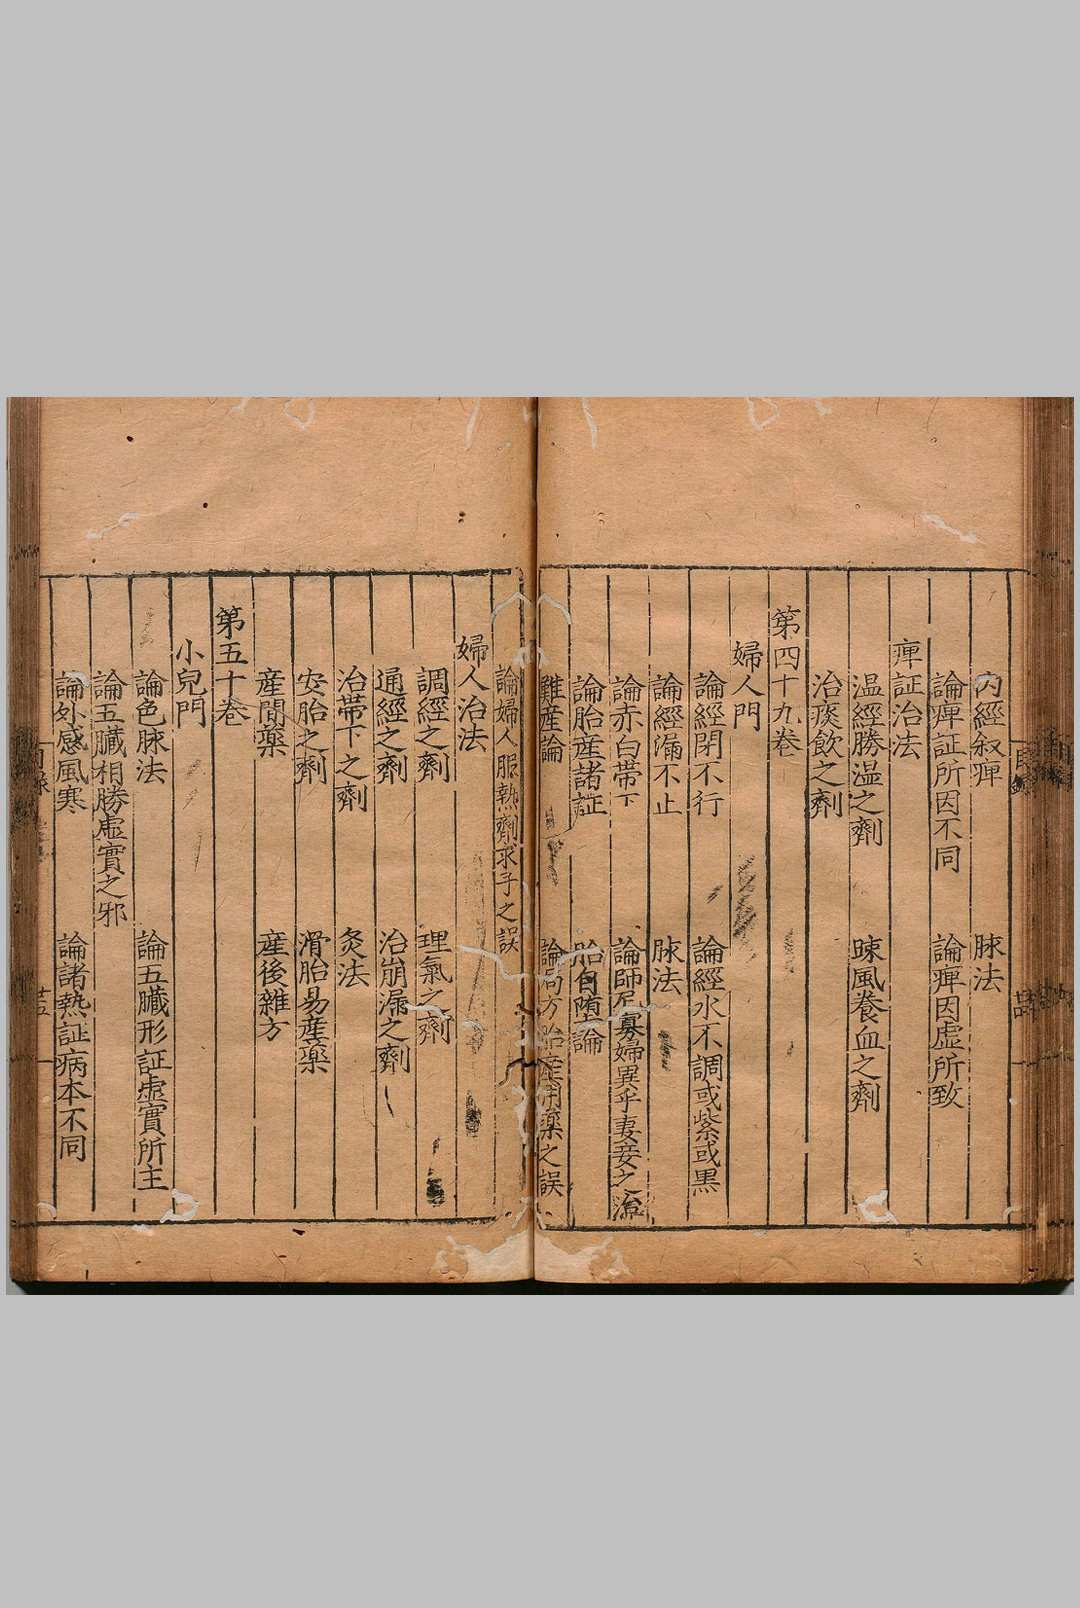 内經叙痺　脉法
論痺証所因不同　論痺因虛所致
痺証治法
温經勝湿之劑　踈風養血之劑
治痰飲之劑
第四十九卷
婦人門
論經閉不行　論經水不調或紫或黒
論經漏不止　脉法
論赤白帶下　論師尼寡婦異乎妻妾之治
論胎産諸証　胎自堕論
難産論　論局方胎産用藥之誤
論婦人服熱劑求子之誤
婦人治法
調經之劑　理氣之劑
通經之劑　治崩漏之劑
治帶下之劑　灸法
安胎之劑　滑胎易産藥
産間藥　産後雜方
第五十卷
小兒門
論色脉法　論五臓形証虛實所主
論五臓相勝虛實之邪
論外感風寒　論諸熱証病本不同